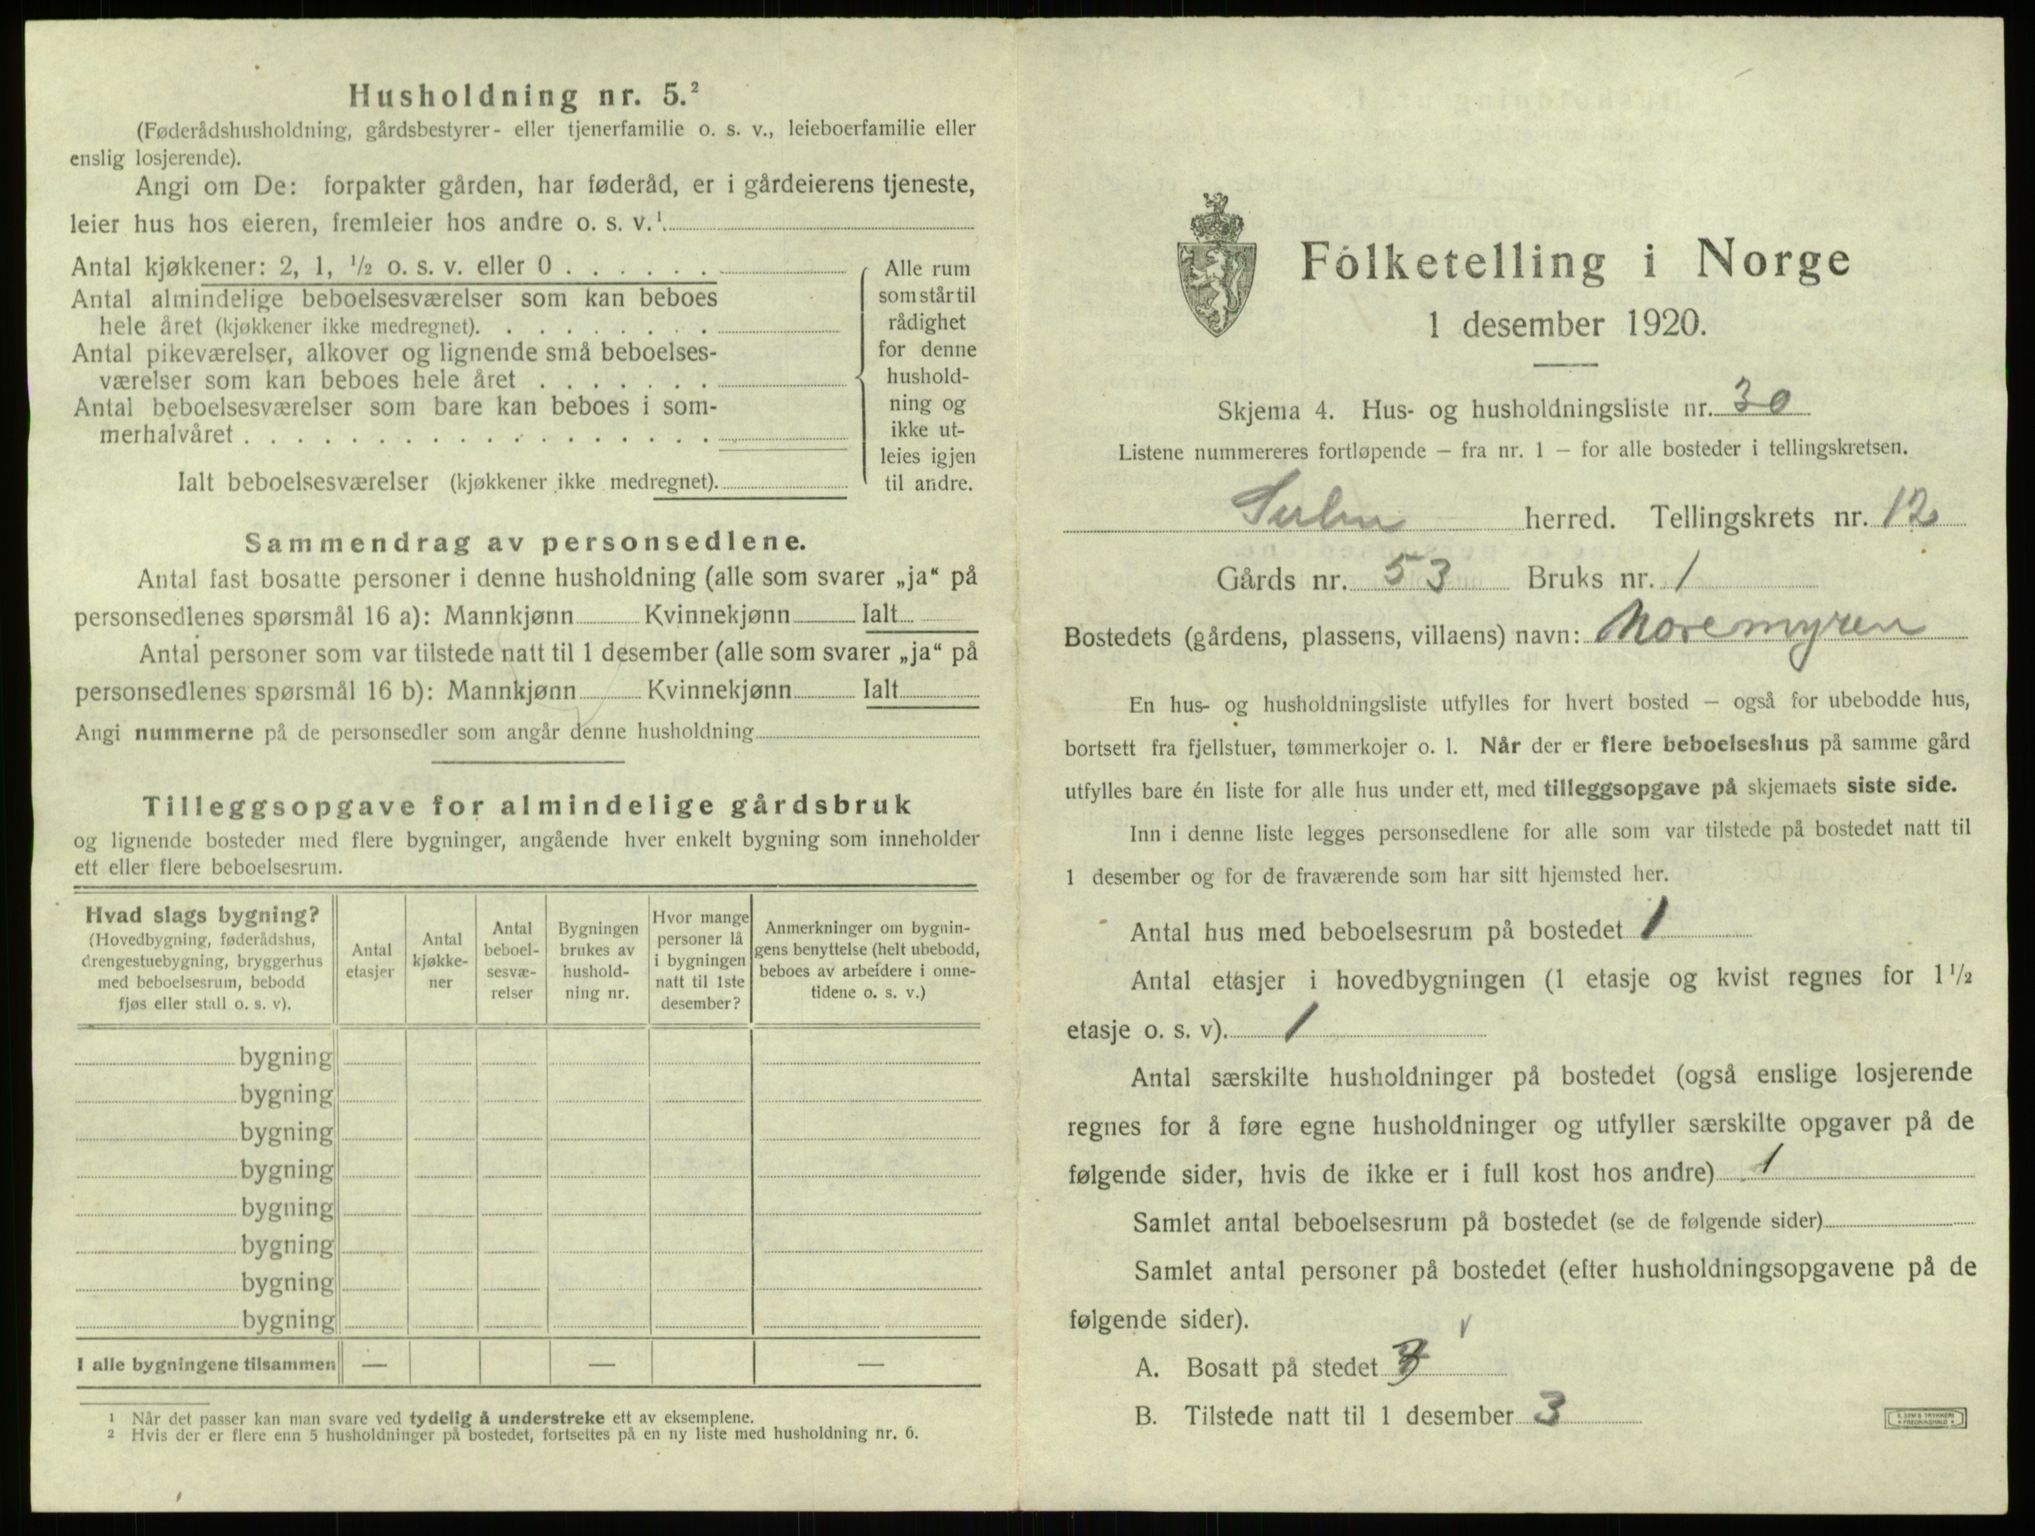 Husholdning nr. 5.²
(Føderådshusholdning, gårdsbestyrer- eller tjenerfamilie o. s. v., leieboerfamilie eller
enslig losjerende).
Angi om De: forpakter gården, har føderåd, er i gårdeierens tjeneste,
leier hus hos eieren, fremleier hos andre o. s. v.¹
Antal kjøkkener: 2, 1, ½ o. s. v. eller 0 . . . . . .
Antal almindelige beboelsesværelser som kan beboes
hele året (kjøkkener ikke medregnet). . . . . . . . .
Antal pikeværelser, alkover og lignende små beboelses-
værelser som kan beboes hele året . . . . . . .
Antal beboelsesværelser som bare kan beboes i som-
merhalvåret . . . . . . . . . . . . . . . . . .
Ialt beboelsesværelser (kjøkkener ikke medregnet).
Alle rum
som står til
rådighet
for denne
hushold-
ning og
ikke ut-
leies igjen
til andre.
Sammendrag av personsedlene.
Antal fast bosatte personer i denne husholdning (alle som svarer „ja“ på
personsedlenes spørsmål 16 a): Mannkjønn Kvinnekjønn Ialt
Antal personer som var tilstede natt til 1 desember (alle som svarer „ja“ på
personsedlenes spørsmål 16 b): Mannkjønn Kvinnekjønn Ialt
Angi nummerne på de personsedler som angår denne husholdning
Tilleggsopgave for almindelige gårdsbruk
og lignende bosteder med flere bygninger, angående hver enkelt bygning som inneholder
ett eller flere beboelsesrum.
Hvad slags bygning?
(Hovedbygning, føderådshus,
drengestuebygning, bryggerhus
med beboelsesrum, bebodd
fjøs eller stall o. s. v).
Antal
etasjer
Antal
kjøkke-
ner
Antal
beboel-
sesvæ-
relser
Bygningen
brukes av
hushold-
ning nr.
Hvor mange
personer lå
i bygningen
natt til 1ste
desember?
Anmerkninger om bygnin-
gens benyttelse (helt ubebodd,
beboes av arbeidere i onne-
tidene o. s. v.)
bygning
bygning
bygning
bygning
bygning
bygning
bygning
bygning
I alle bygningene tilsammen — — —
¹ Når det passer kan man svare ved tydelig å understreke ett av eksemplene.
² Hvis der er flere enn 5 husholdninger på bostedet, fortsettes på en ny liste med husholdning nr. 6.
Folketelling i Norge
1 desember 1920.
Skjema 4. Hus- og husholdningsliste nr. 30
Listene nummereres fortløpende – fra nr. 1 – for alle bosteder i tellingskretsen.
Sulen herred. Tellingskrets nr. 12
Gårds nr. 53 Bruks nr. 1
Bostedets (gårdens, plassens, villaens) navn: Noremyren
En hus- og husholdningsliste utfylles for hvert bosted – også for ubebodde hus,
bortsett fra fjellstuer, tømmerkojer o. l. Når der er flere beboelseshus på samme gård
utfylles bare én liste for alle hus under ett, med tilleggsopgave på skjemaets siste side.
Inn i denne liste legges personsedlene for alle som var tilstede på bostedet natt til
1 desember og for de fraværende som har sitt hjemsted her.
Antal hus med beboelsesrum på bostedet 1
Antal etasjer i hovedbygningen (1 etasje og kvist regnes for 1 ½
etasje o. s. v). 1
Antal særskilte husholdninger på bostedet (også enslige losjerende
regnes for å føre egne husholdninger og utfyller særskilte opgaver på de
følgende sider, hvis de ikke er i full kost hos andre) 1
Samlet antal beboelsesrum på bostedet (se de følgende sider)
Samlet antal personer på bostedet (efter husholdningsopgavene på de
følgende sider).
A. Bosatt på stedet
B. Tilstede natt til 1 desember 3